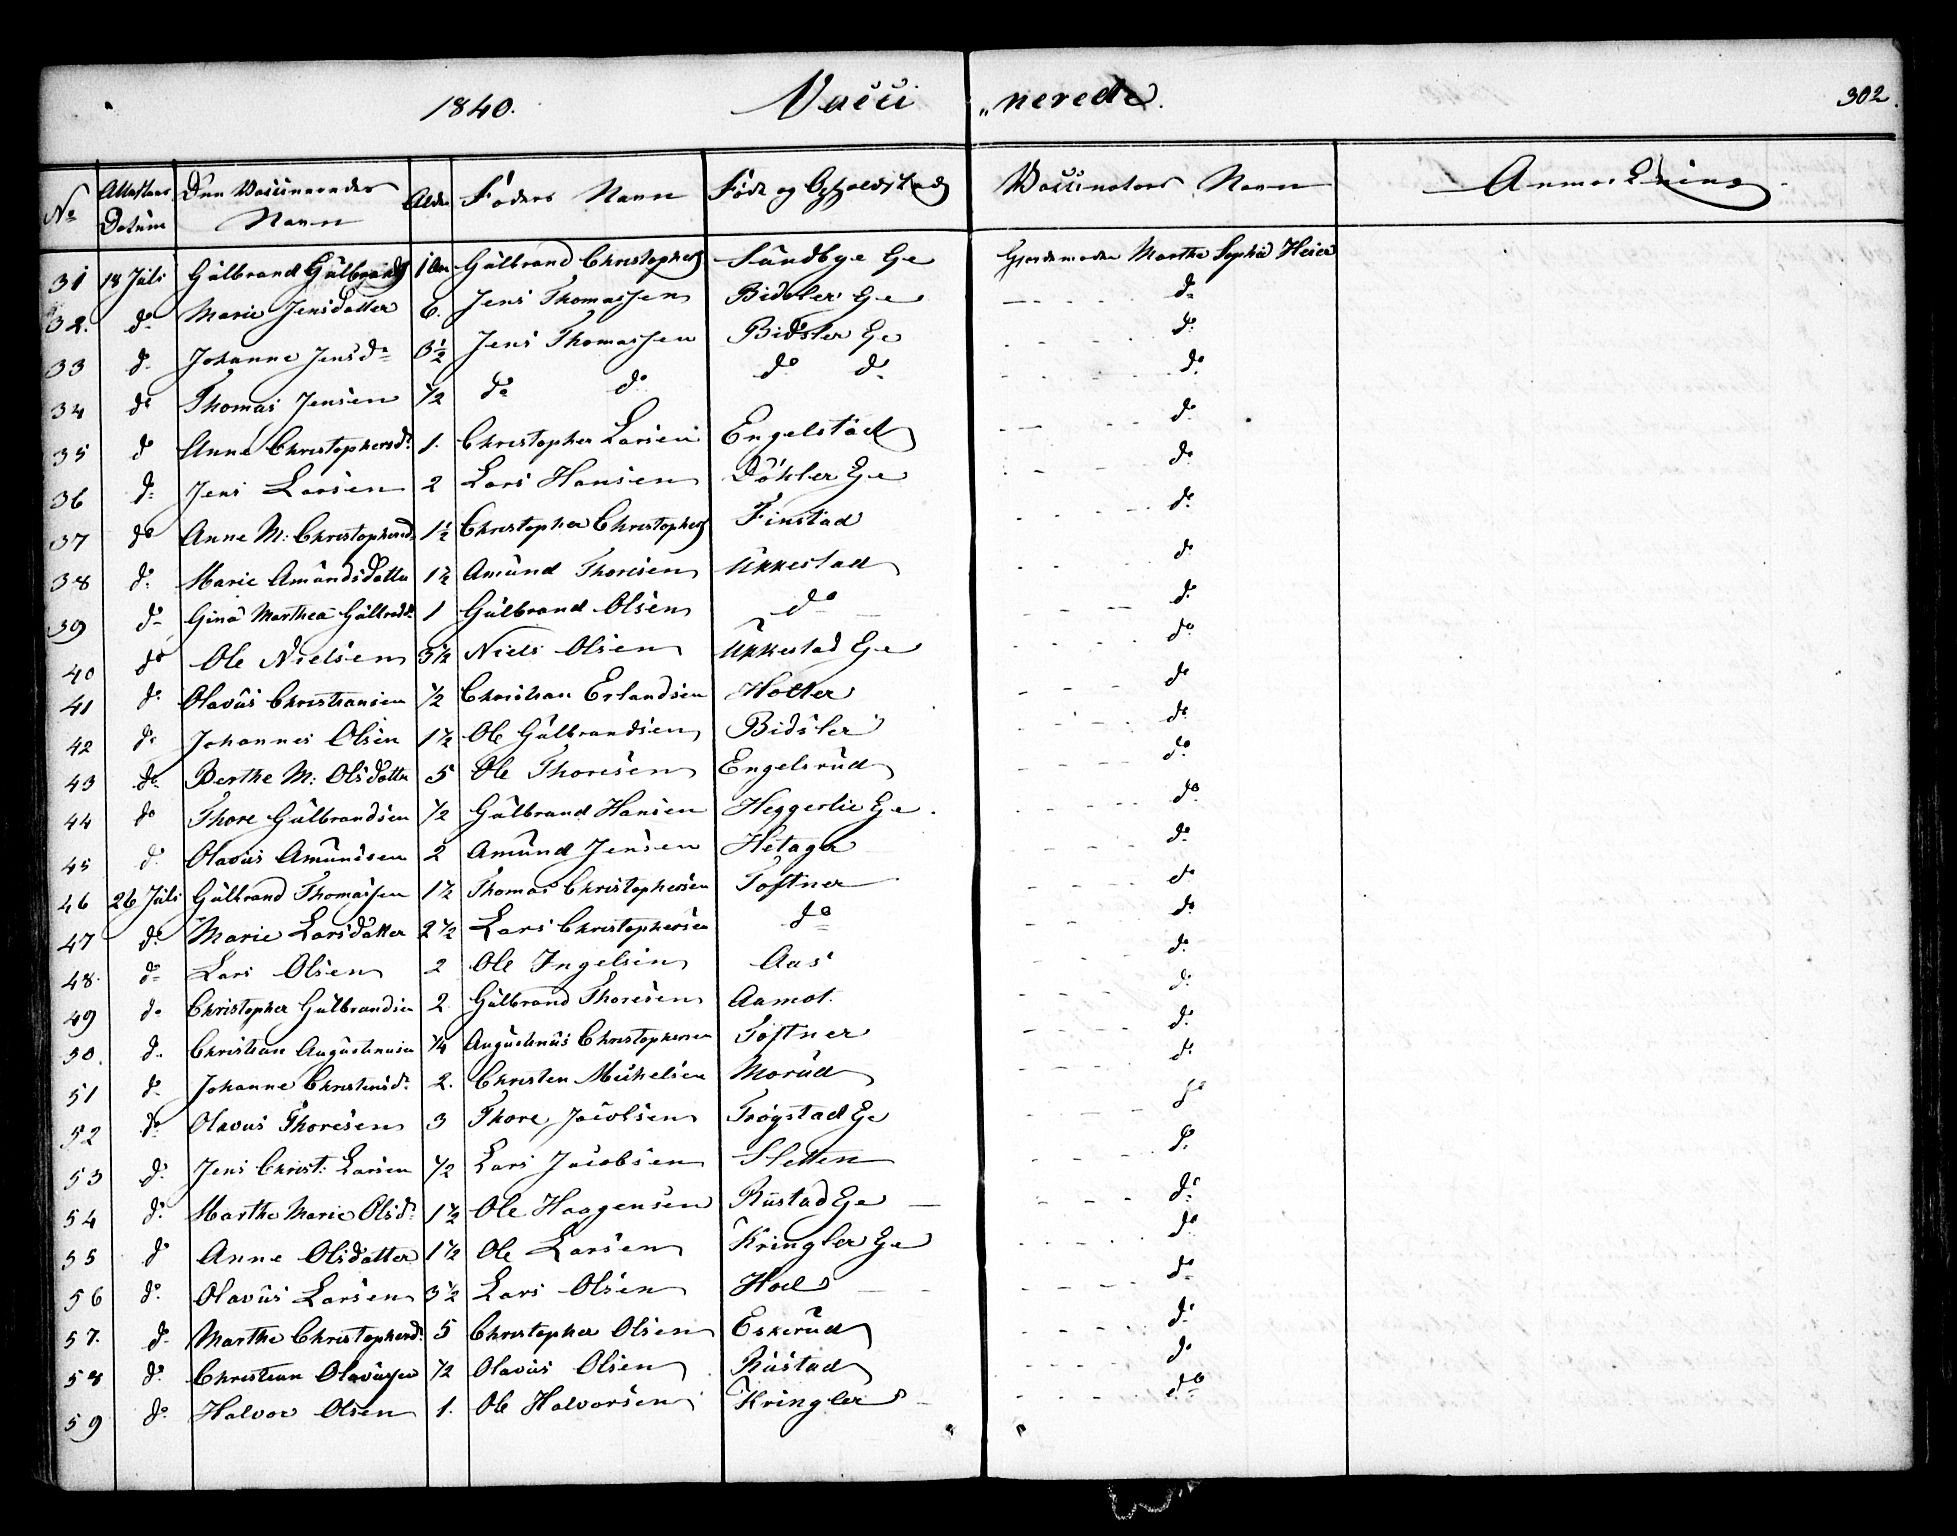 1840. Vacci „nerede. 302.
No Attestens Datum Den Vaccineredes Navn Alder Faders Navn Føde og Opholdsted Vaccinators Navn Anmærkning
31 18 Juli Gulbrand Gulbrands 1 Aar Gulbrand Christophers Sundbye Eie Gjordemoder Marthe Sophie Heier
32. do Marie Jensdatter 6. Jens Thomassen Bidsler Eie do
33 do Johanne Jensdr 3½ Jens Thomassen Bidsler Eie do
34 do Thomas Jensen ½ do do do do do
35 do Anne Christophersdr 1. Christopher Larsen Engelstad do
36 do Jens Larsen 2 Lars Hansen Døhler Eie do
37 do Anne M: Christophersd 1½ Christopher Christophers Finstad do
38 do Marie Amundsdatter 1½ Amund Thoresen Ukkestad do
39 do Gina Marthea Gulbrdr 1 Gulbrand Olsen do do
40 do Ole Nielsen 3½ Niels Olsen Ukkestad Eie do
41 do Olavus Christiansen ½ Christian Erlandsen Holter do
42 do Johannes Olsen 1½ Ole Gulbrandsen Bidsler do
43 do Berthe M: Olsdatter 5 Ole Thoresen Engelsrud do
44 do Thore Gulbrandsen ½ Gulbrand Hansen Heggerlie Eie. do
45 do Olavus Amundsen 2 Amund Jensen Hetager do
46 26 Juli Gulbrand Thomassen 1½ Thomas Christophersen Toftner do
47 do Marie Larsdatter 2½ Lars Christophersen do do
48. do Lars Olsen 2 Ole Ingelsen Aas do
49 do Christopher Gulbrandsen 2. Gulbrand Thoresen Aamot. do
50. do Christian Augustinusen ¼ Augustinus Christophersen Toftner do
51 do Johanne Christensdr 2. Christen Michelsen Morud do
52 do Olavus Thoresen 3 Thore Jacobsen Trøgstad Eie do
53 do Jens Christ: Larsen ½ Lars Jacobsen Sletten do
54 do Marthe Marie Olsdr 1½ Ole Haagensen Rustad Eie do
55 do Anne Olsdatter 1½ Ole Larsen Kringler Eie do
56 do Olavus Larsen 3½ Lars Olsen Hoel do
57. do Marthe Christophersdr 5 Christopher Olsen Eskerud do
58 do Christian Olavussen ½ Olavus Olsen Rustad do
59 do Halvor Olsen 1. Ole Halvorsen Kringler do